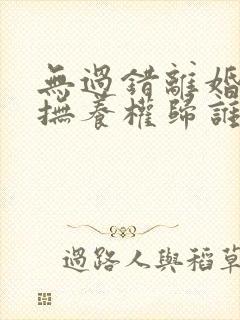 無過錯離婚
撫養權歸誰
過路人與稻草